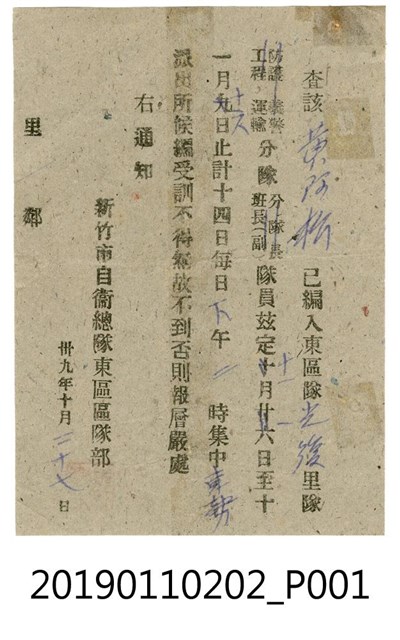 查該 黃阿 已編入東區隊光復里隊
防護 警
工程，運輸 分隊 分隊長
班長（副） 隊員茲定十月廿六日至十
一月九日止計十四日每日下午二時集中東勢
派出所候編受訓不得無故不到否則報層嚴處
右通知
新竹市自衛總隊東區區隊部
里 鄰
卅九年十月二十七日
20190110202_P001